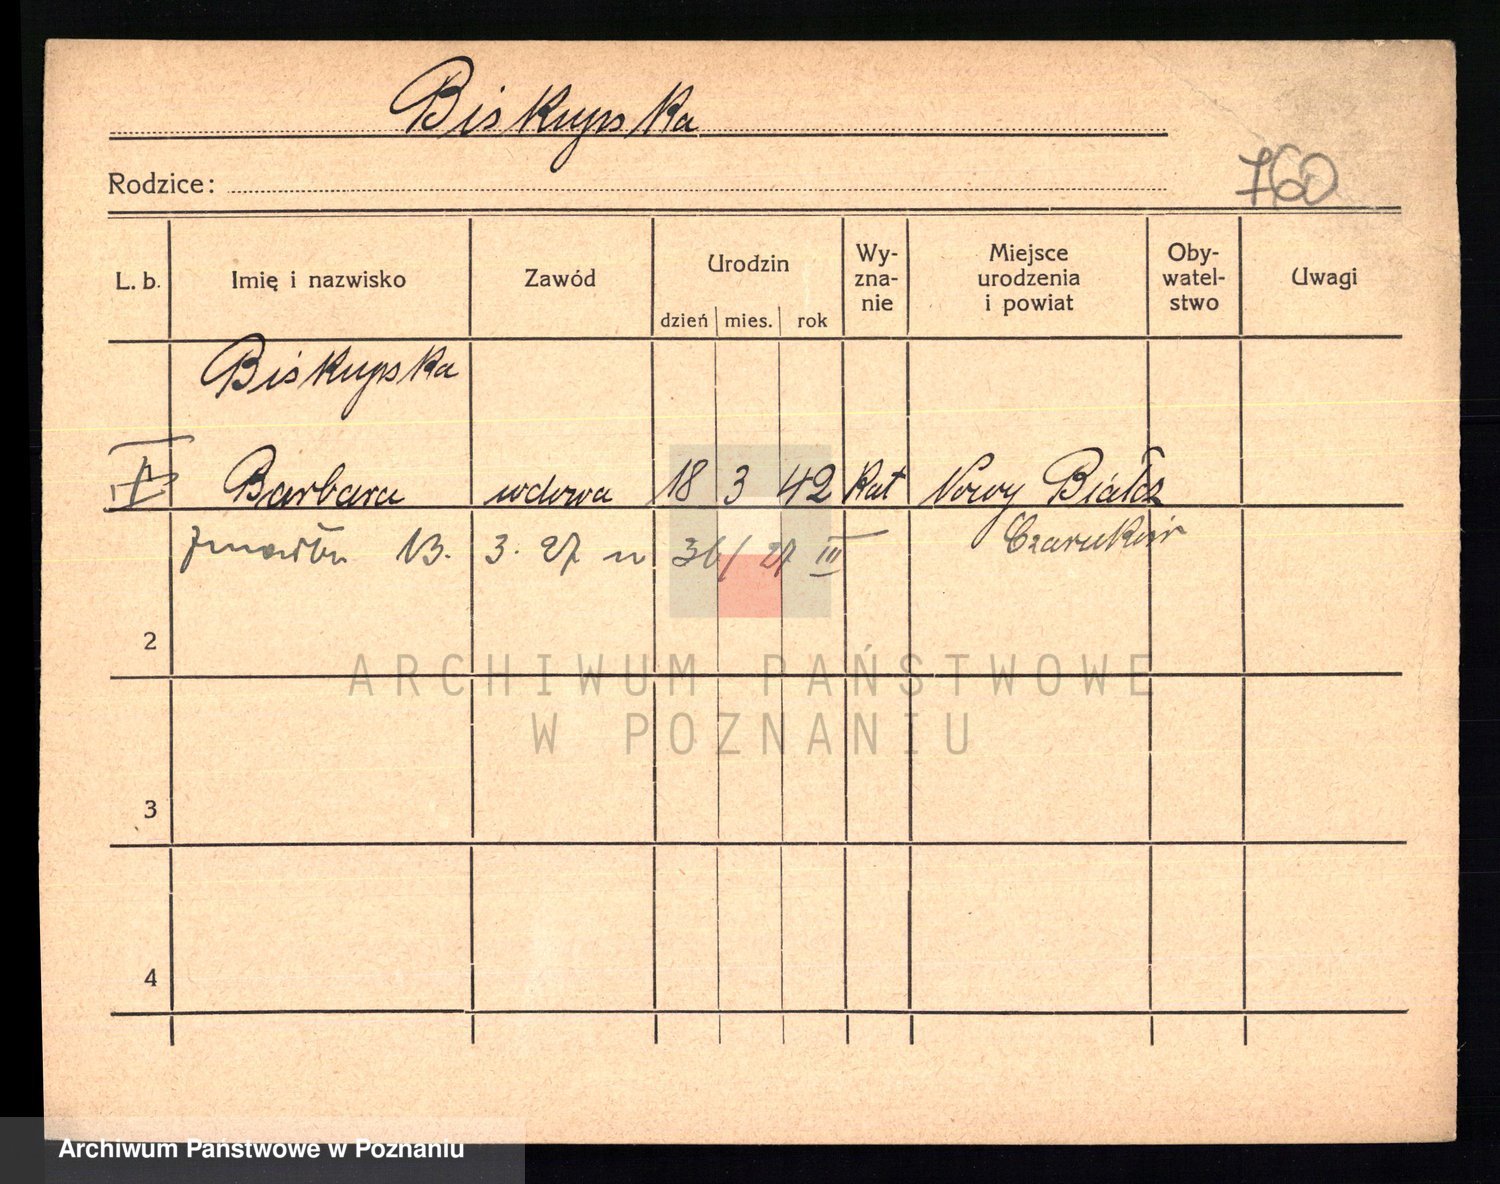 Biskupska
Rodzice:
760
L. b. Imię i nazwisko Zawód Urodzin dzień mies. rok Wy-zna-nie Miejsce urodzenia i powiat Oby-watel-stwo Uwagi
Biskupska
Barbara wdowa 18 3 42 Kat Nowy Białcz
zmarła 13. 3. 27 36/27 III
2
ARCHIWUM PAŃSTWOWE
W POZNANIU
3
4
Archiwum Państwowe w Poznaniu